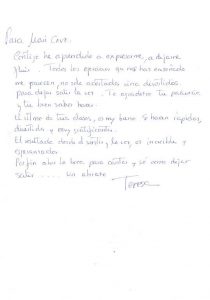 Para Mari Cruz.
Contigo he aprendido a expresarme, a dejarme
fluir. Todos los ejercicios que nos has enseñado
me parecen, no solo acertados sino divertidos
para dejar salir la voz. Te agradezco tu paciencia
y tu buen saber hacer.
El ritmo de tus clases, es muy bueno. Se hacen rápidas,
divertidas y muy gratificantes.
El resultado desde el sentir y la voz, es increíble y
esperanzador.
Por fin abro la boca para cantar y sé como dejar
salir ..... Un abrazo
Teresa